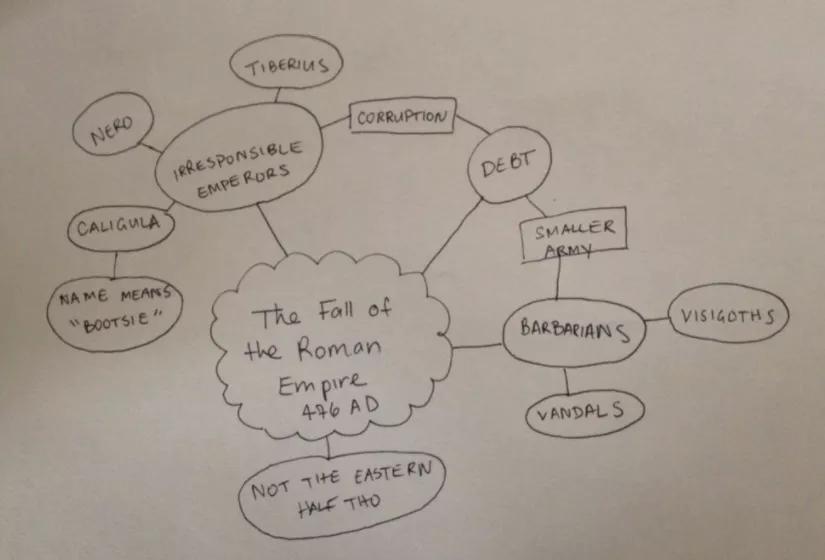 TIBERIUS
NERO
CORRUPTION
IRRESPONSIBLE
EMPERORS
DEBT
CALIGULA
SMALLER
ARMY
NAME MEANS
"BOOTSIE"
The Fall of
the Roman
Empire
476 AD
BARBARIANS
VISIGOTHS
VANDALS
NOT THE EASTERN
HALF THO